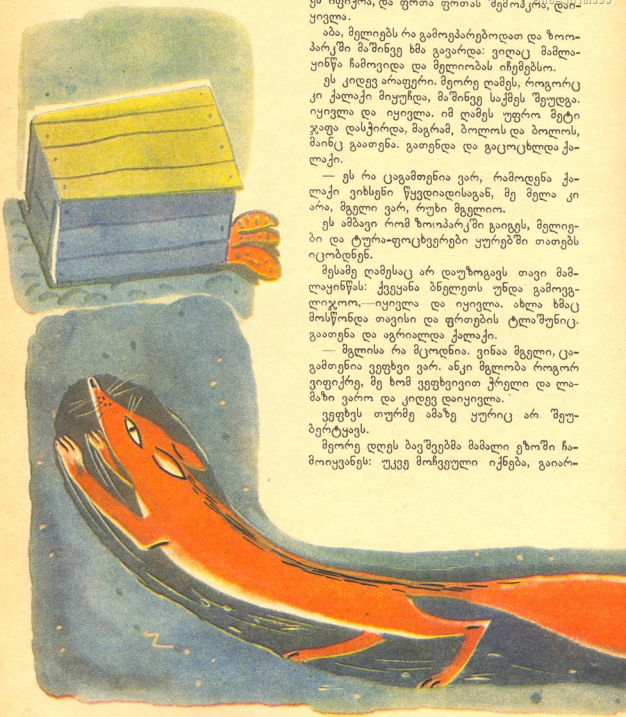 ეს იფიქრა, და ფრთა ფრთას შემოჰკრა, დაი-
ყივლა.
აბა, მელიებს რა გამოეპარებოდათ და ზოო-
პარკში მაშინვე ხმა გავარდა: ვიღაც მამლა-
ყინწა ჩამოვიდა და მელიობას იჩემებსო.
ეს კიდევ არაფერი. მეორე ღამეს, როგორც
კი ქალაქი მიყუჩდა, მაშინვე საქმეს შეუდგა.
იყივლა და იყივლა. იმ ღამეს უფრო მეტი
ჯაფა დასჭირდა, მაგრამ, ბოლოს და ბოლოს,
მაინც გაათენა. გათენდა და გაცოცხლდა ქა-
ლაქი.
— ეს რა ცაგამთენია ვარ, რამოდენა ქა-
ლაქი ვიხსენი წყვდიადისაგან, მე მელა კი
არა, მგელი ვარ, რუხი მგელიო.
ეს ამბავი რომ ზოოპარკში გაიგეს, მელიე-
ბი და ტურა-ფოცხვერები ყურებში თათებს
იცობდნენ.
მესამე ღამესაც არ დაუზოგავს თავი მამ-
ლაყინწას: ქვეყანა ბნელეთს უნდა გამოვგ-
ლიჯოო,—იყივლა და იყივლა. ახლა ხმაც
მოსწონდა თავისი და ფრთების ტლაშუნიც.
გაათენა და აგრიალდა ქალაქი.
— მგლისა რა მცოდნია. ვინაა მგელი, ცა-
გამთენია ვეფხვი ვარ. ანკი მგლობა როგორ
ვიფიქრე, მე ხომ ვეფხვივით ჭრელი და ლა-
მაზი ვარო და კიდევ დაიყივლა.
ვეფხვს თურმე ამაზე ყურიც არ შეუ-
ბერტყავს.
მეორე დღეს ბავშვებმა მამალი ეზოში ჩა-
მოიყვანეს: უკვე მოჩვეული იქნება, გაიარ-